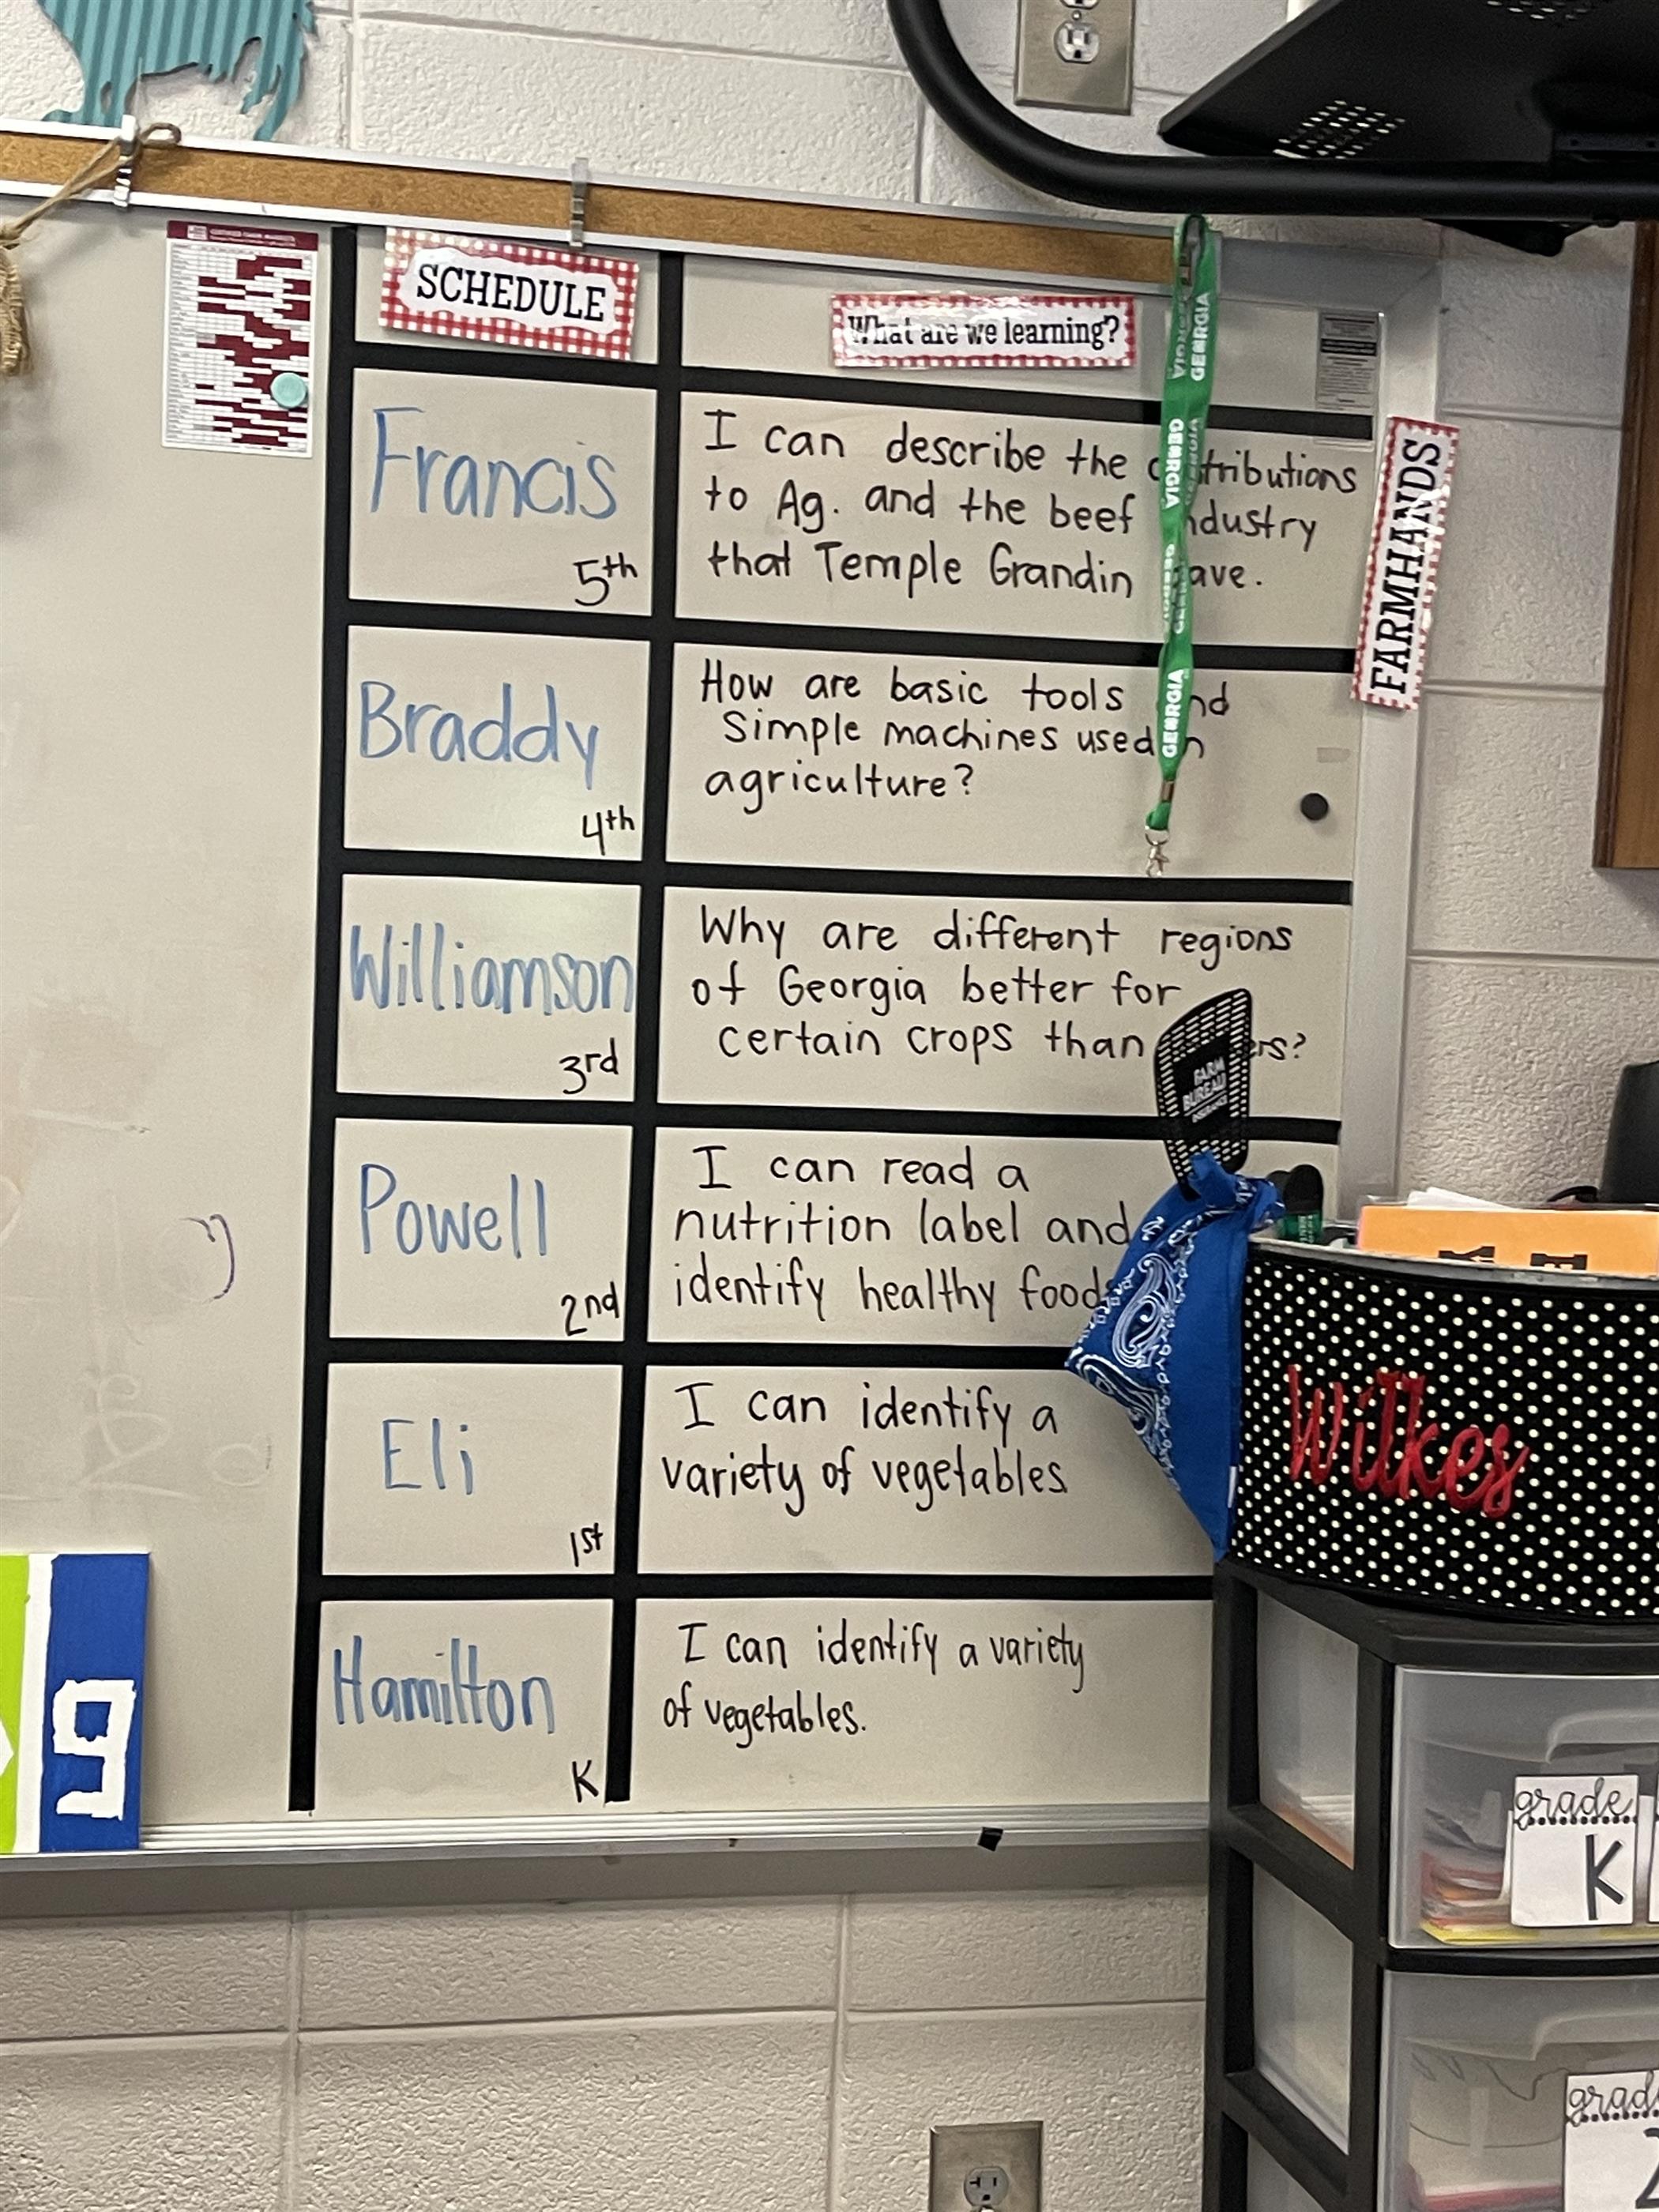 SCHEDULE
What are we learning?
Francis
5th
I can describe the contributions
to Ag. and the beef industry
that Temple Grandin gave.
Braddy
4th
How are basic tools and
simple machines used in
agriculture?
Williamson
3rd
Why are different regions
of Georgia better for
certain crops than others?
Powell
2nd
I can read a
nutrition label and
identify healthy foods
Eli
1st
I can identify a
variety of vegetables
Hamilton
K
I can identify a variety
of vegetables.
FARMHANDS
GEORGIA
GEORGIA
GEORGIA
GEORGIA
FARM
BUREAU
INSURANCE
Wilkes
grade
K
grade
2